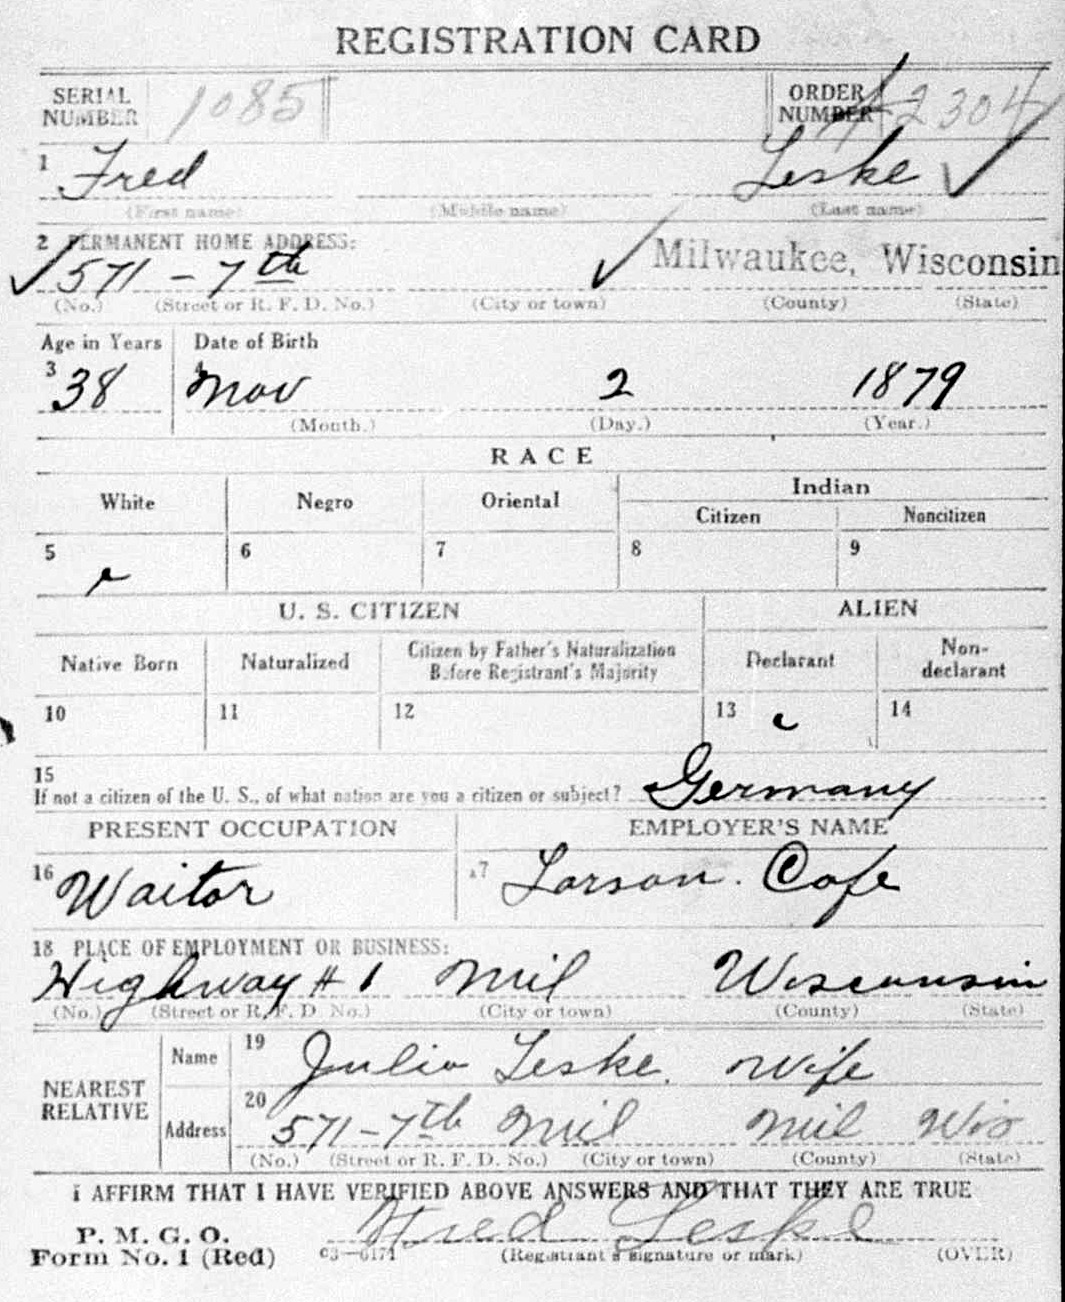 REGISTRATION CARD
SERIAL NUMBER 1085 ORDER NUMBER A2304
1 Fred Leske
(First name) (Middle name) (Last name)
2 PERMANENT HOME ADDRESS:
571 - 7th Milwaukee, Wisconsin
(No.) (Street or R. F. D. No.) (City or town) (County) (State)
Age in Years Date of Birth
3 38 4 Nov 2 1879
(Month.) (Day.) (Year.)
RACE
White Negro Oriental Indian
Citizen Noncitizen
5 6 7 8 9
U. S. CITIZEN ALIEN
Native Born Naturalized Citizen by Father's Naturalization Before Registrant's Majority Declarant Non-declarant
10 11 12 13 14
15
If not a citizen of the U. S., of what nation are you a citizen or subject? Germany
PRESENT OCCUPATION EMPLOYER'S NAME
16 Waitor 17 Larson. Cafe
18 PLACE OF EMPLOYMENT OR BUSINESS:
Highway # 1 Mil Wisconsin
(No.) (Street or R. F. D. No.) (City or town) (County) (State)
NEAREST RELATIVE
Name 19 Julia Leske. Wife
Address 20 571-7th Mil Mil Wis
(No.) (Street or R. F. D. No.) (City or town) (County) (State)
I AFFIRM THAT I HAVE VERIFIED ABOVE ANSWERS AND THAT THEY ARE TRUE
P. M. G. O.
Form No. 1 (Red) 03—6171 Fred Leske
(Registrant's signature or mark) (OVER)